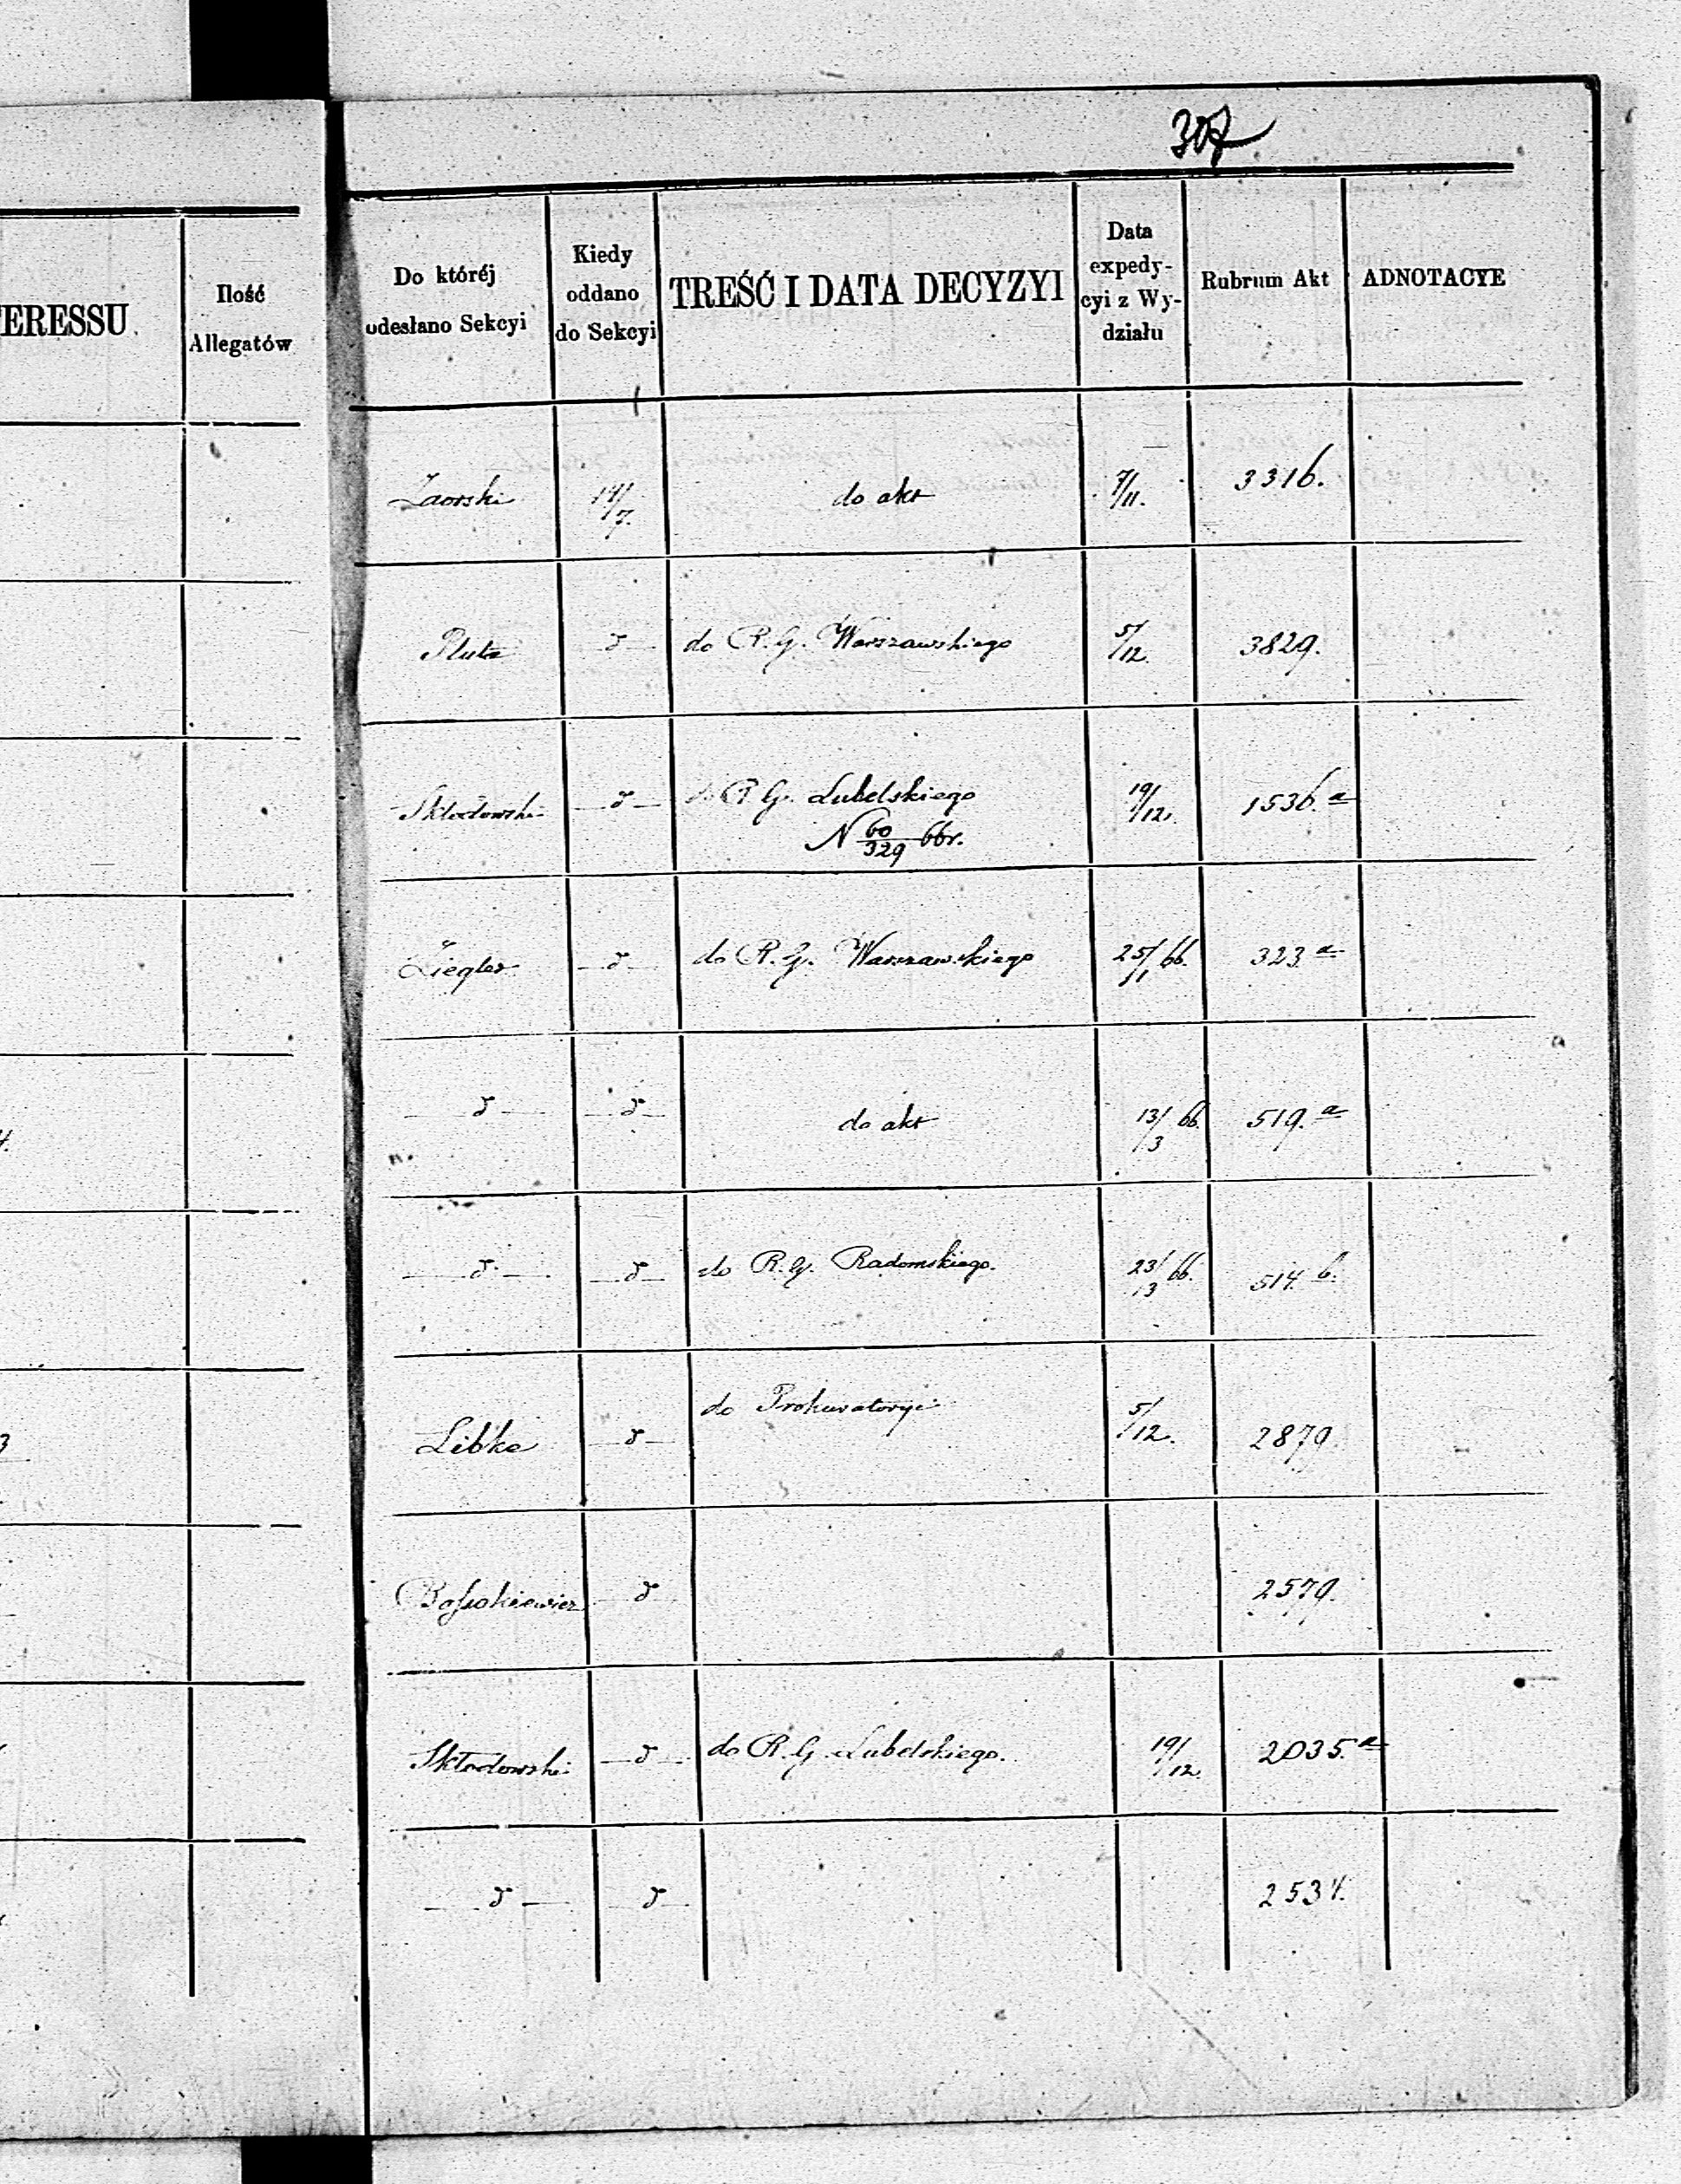 307
ERESSU
Ilość
Allegatów
Do któréj
odesłano Sekcyi
Kiedy
oddano
do Sekcyi
TREŚĆ I DATA DECYZYI
Data
expedy-
cyi z Wy-
działu
Rubrum Akt
ADNOTACYE
Zaorski 14/7. do akt 7/11. 3316.
Pluta d do R. G. Warszawskiego 5/12. 3829.
Skłodowski d do R. G. Lubelskiego 19/12. 1536.a
N 60/329 66r.
Ziegler d do R. G. Warszawskiego 25/1 66. 323.a
d d do akt 13/3 66. 519.a
d d do R. G. Radomskiego. 23/3 66. 514. b.
Libke d do Prokuratoryi 5/12. 2879.
d 2579.
Skłodowski d do R. G. Lubelskiego. 19/12. 2035.a
d d 2534.